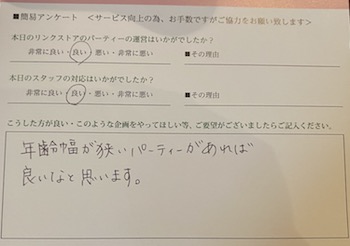 ■簡易アンケート　＜サービス向上の為、お手数ですがご協力をお願い致します＞
本日のリンクストアのパーティーの運営はいかがでしたか？
非常に良い・良い・悪い・非常に悪い　■その理由
本日のスタッフの対応はいかがでしたか？
非常に良い・良い・悪い・非常に悪い　■その理由
こうした方が良い・このような企画をやってほしい等、ご要望がございましたらご記入ください。
年齢幅が狭いパーティーがあれば
良いなと思います。